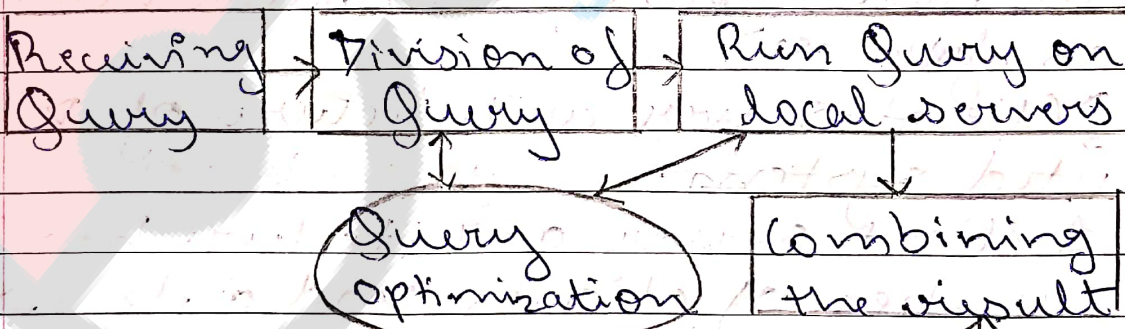 Receiving
Query
Division of
Query
Run Query on
local servers
Query
optimization
Combining
the result